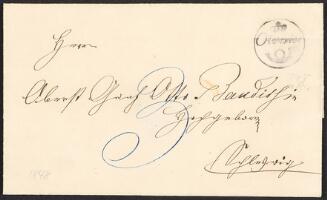 Herrn
Oberst Graf Otto Baudissin
Hochgeborn
Schleswig
3
1848